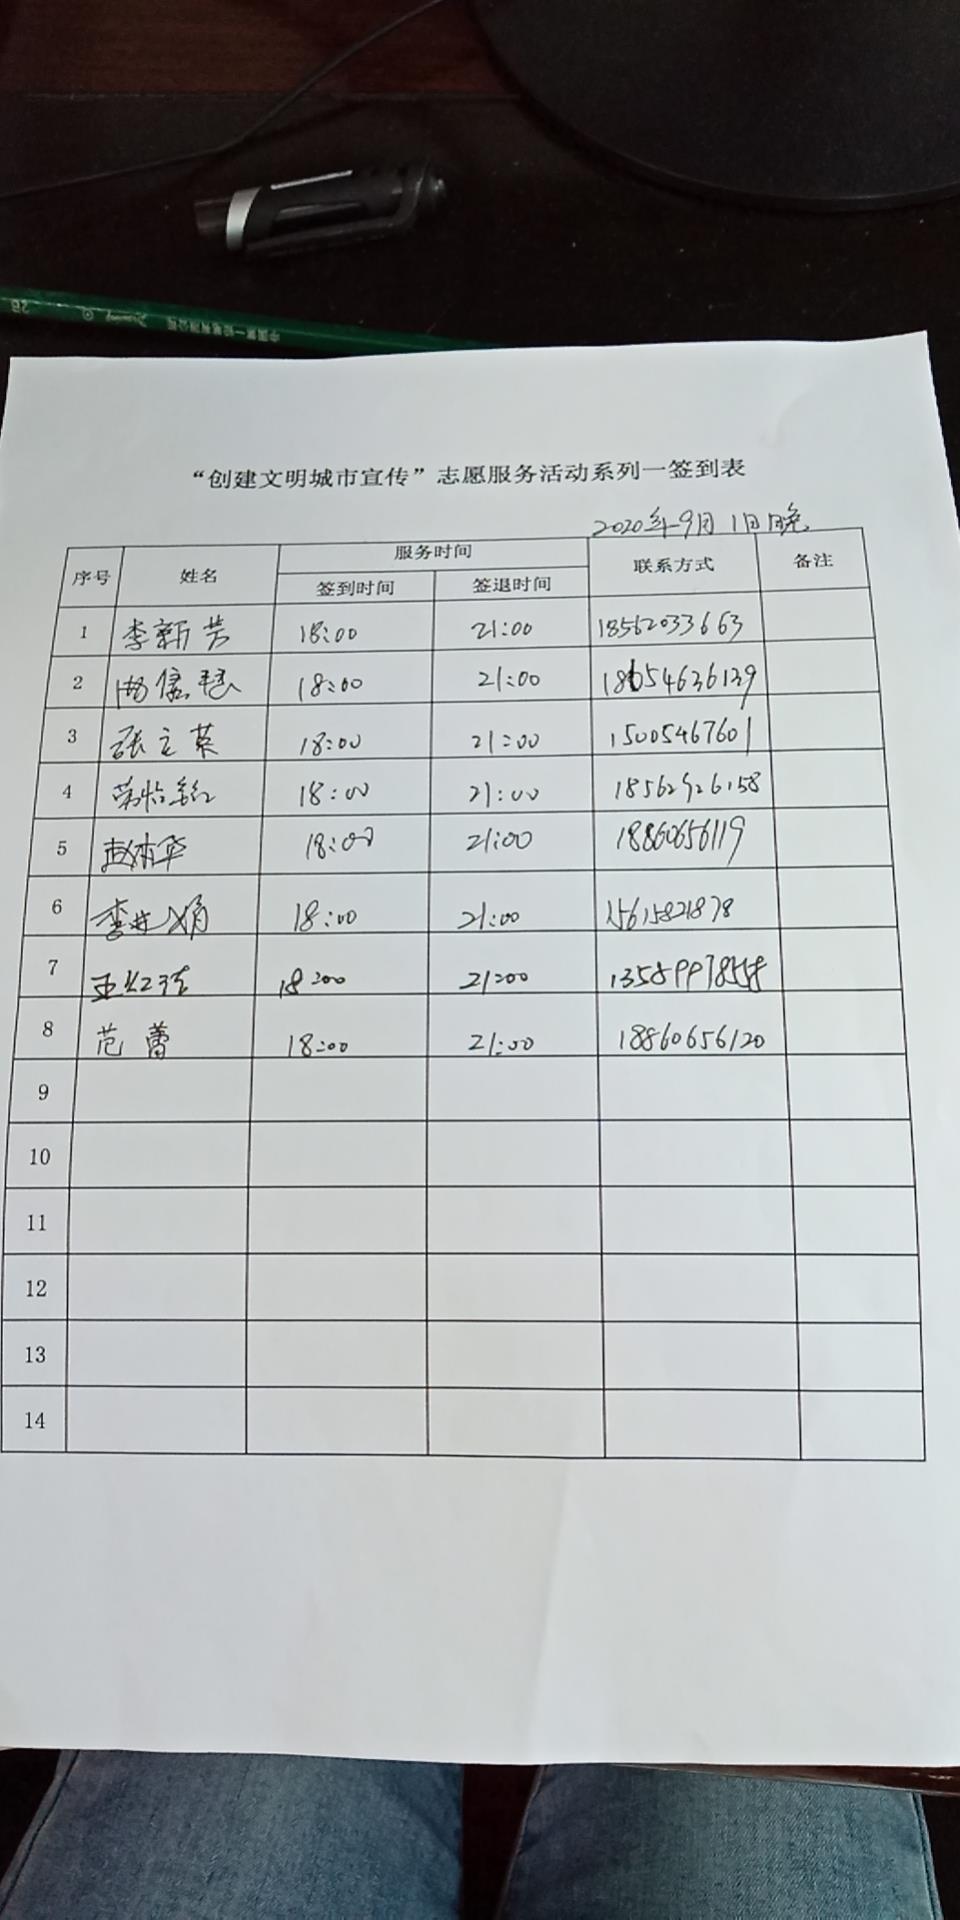 中国第一铅笔有限公司 2B
“创建文明城市宣传”志愿服务活动系列一签到表
2020年9月1日晚
序号 姓名 服务时间 联系方式 备注
签到时间 签退时间
1 李新芳 18:00 21:00 18562033663
2 18:00 21:00 18654636139
3 张立英 18:00 21:00 15005467601
4 18:00 21:00 18562926158
5 18:00 21:00 18860656119
6 18:00 21:00 15615821878
7 18:00 21:00
8 范蕾 18:00 21:00 18860656120
9
10
11
12
13
14